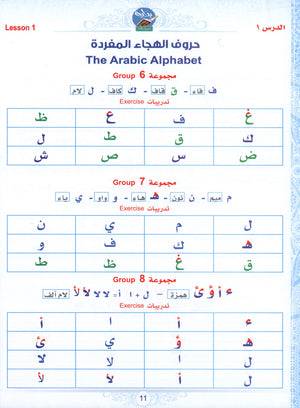 الدرس ١ Lesson 1
حروف الهجاء المفردة
The Arabic Alphabet
مجموعة 6 Group
ف فاء - ق قاف - ك كاف - ل لام
تدريبات Exercise
غ ف ع ظ
ك ق ط ل
ض س ص ش
مجموعة 7 Group
م ميم - ن نون - هـ هاء - و واو - ي ياء
تدريبات Exercise
ل م ي ن
هـ ك ف و
ق غ ظ ط
مجموعة 8 Group
ء أ ؤ ئ همزة - ل + ا = لا لا لأ لام ألف
تدريبات Exercise
ء أ ا أ
هـ ؤ ي ئ
ل ا لا لا
ل أ لأ لأ
11